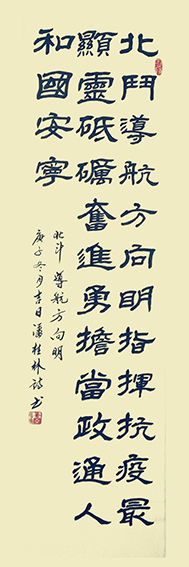 北鬥導航方向明指揮抗疫最
顯靈砥礪奮進勇擔當政通人
和國安寧
北斗導航方向明
庚子冬月吉日潘桂林詩書